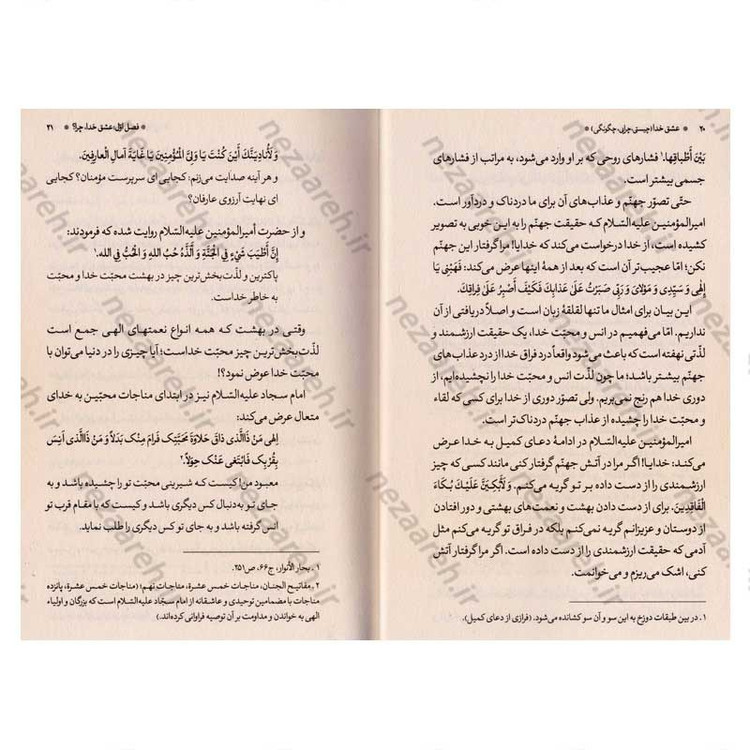 ۲۰ * عشق خدا (چیستی، چرایی، چگونگی) *
بَیْنَ أَطْباقِها.¹ فشارهای روحی که بر او وارد می‌شود، به مراتب از فشارهای
جسمی بیشتر است.
حتّی تصوّر جهنّم و عذاب‌های آن برای ما دردناک و دردآور است.
امیرالمؤمنین علیه‌السّلام که حقیقت جهنّم را به این خوبی به تصویر
کشیده است، از خدا درخواست می‌کند که خدایا! مرا گرفتار این جهنّم
نکن؛ امّا عجیب‌تر آن است که بعد از همهٔ اینها عرض می‌کند: فَهَبْنی یَا
إِلٰهِی وَ سَیِّدِی وَ مَوْلَایَ وَ رَبِّی صَبَرْتُ عَلَىٰ عَذَابِكَ فَکَیْفَ أَصْبِرُ عَلَىٰ فِراقِكَ.
این بیان برای امثال ما تنها لقلقهٔ زبان است و اصلاً دریافتی از آن
نداریم. امّا می‌فهمیم در انس و محبّت خدا، یک حقیقت ارزشمند و
لذّتی نهفته است که باعث می‌شود واقعاً درد فراق خدا از درد عذاب‌های
جهنّم بیشتر باشد؛ ما چون لذّت انس و محبّت خدا را نچشیده‌ایم، از
دوری خدا هم رنج نمی‌بریم. ولی تصوّر دوری از خدا برای کسی که لقاء
و محبّت خدا را چشیده از عذاب جهنّم دردناک‌تر است.
امیرالمؤمنین علیه‌السّلام در ادامهٔ دعای کمیل به خدا عرض
می‌کند: خدایا! اگر مرا در آتش جهنّم گرفتار کنی مانند کسی که چیز
ارزشمندی را از دست داده بر تو گریه می‌کنم. وَ لَأَبْکِیَنَّ عَلَیْكَ بُکَاءَ
الْفَاقِدِینَ. برای از دست دادن بهشت و نعمت‌های بهشتی و دور افتادن
از دوستان و عزیزانم گریه نمی‌کنم بلکه در فراق تو گریه می‌کنم مثل
آدمی که حقیقت ارزشمندی را از دست داده است. اگر مرا گرفتار آتش
کنی، اشک می‌ریزم و می‌خوانمت.
۱. در بین طبقات دوزخ به این سو و آن سو کشانده می‌شود. (فرازی از دعای کمیل).
* فصل اوّل: عشق خدا، چرا؟ * ۲۱
وَ لَأُنادِیَنَّكَ أَیْنَ کُنْتَ یَا وَلِیَّ الْمُؤْمِنِینَ یَا غَایَةَ آمَالِ الْعارِفِینَ.
و هر آینه صدایت می‌زنم: کجایی ای سرپرست مؤمنان؟ کجایی
ای نهایت آرزوی عارفان؟
و از حضرت أمیرالمؤمنین علیه‌السّلام روایت شده که فرمودند:
إِنَّ أَطْیَبَ شَیْءٍ فِی الْجَنَّةِ وَ أَلَذَّهُ حُبُّ اللهِ وَ الْحُبُّ فِی الله.¹
پاکترین و لذّت‌بخش‌ترین چیز در بهشت محبّت خدا و محبّت
به خاطر خداست.
وقتی در بهشت که همه انواع نعمتهای الهی جمع است
لذّت‌بخش‌ترین چیز محبّت خداست؛ آیا چیزی را در دنیا می‌توان با
محبّت خدا عوض نمود؟!
امام سجاد علیه‌السّلام نیز در ابتدای مناجات محبّین به خدای
متعال عرض می‌کند:
إِلٰهِی مَنْ ذَا الَّذِی ذَاقَ حَلَاوَةَ مَحَبَّتِكَ فَرَامَ مِنْكَ بَدَلًا وَ مَنْ ذَا الَّذِی أَنِسَ
بِقُرْبِكَ فَابْتَغَى عَنْكَ حِوَلًا.²
معبود من! کیست که شیرینی محبّت تو را چشیده باشد و به
جای تو به‌دنبال کس دیگری باشد و کیست که با مقام قرب تو
انس گرفته باشد و به جای تو کس دیگری را طلب نماید.
۱. بحار الأنوار، ج۶۶، ص۲۵۱.
۲. مفاتیح الجنان، مناجات خمس عشرة، مناجات نهم؛ (مناجات خمس عشرة، پانزده
مناجات با مضامین توحیدی و عاشقانه از امام سجّاد علیه‌السّلام است که بزرگان و اولیاء
الهی به خواندن و مداومت بر آن توصیه فراوانی کرده‌اند.)
nezaareh.ir